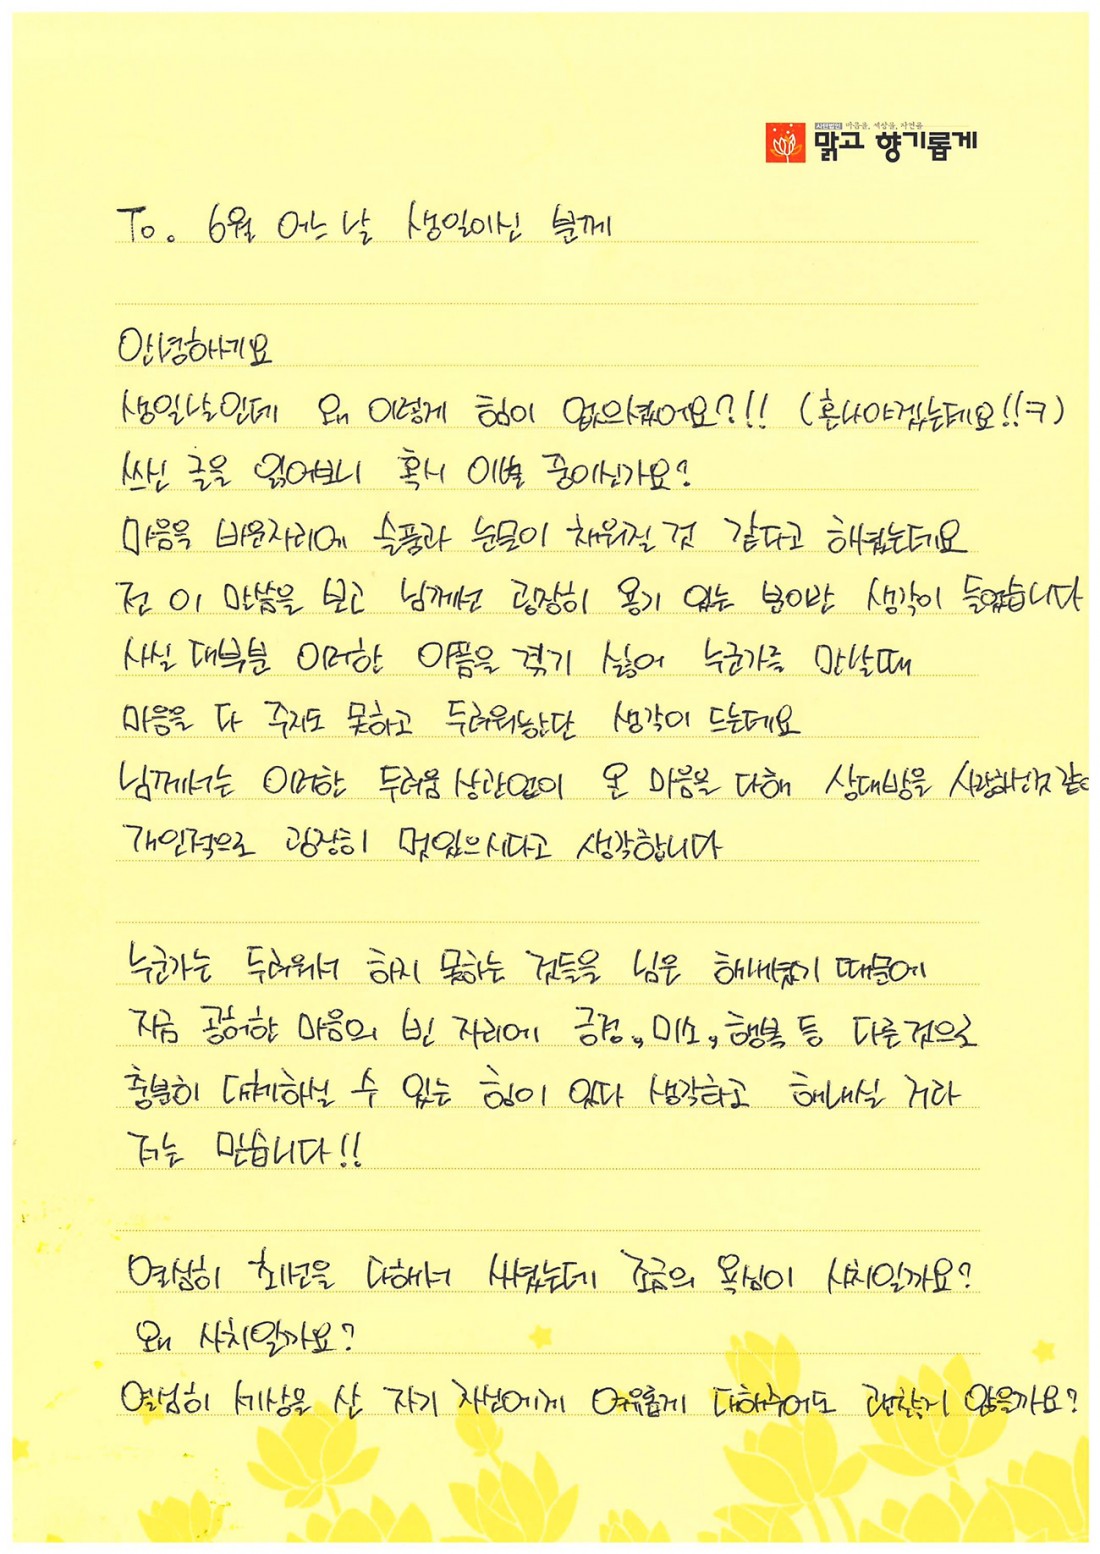 사단법인 마음을, 세상을, 자연을
맑고 향기롭게
To. 6월 어느 날 생일이신 분께
안녕하세요
생일날인데 왜 이렇게 힘이 없으셨어요?!! (혼나야겠는데요!!ㅋ)
쓰신 글을 읽어보니 혹시 이별 중이신가요?
마음을 비운자리에 슬픔과 눈물이 채워질 것 같다고 하셨는데요
전 이 말씀을 보고 님께선 굉장히 용기 있는 분이란 생각이 들었습니다
사실 대부분 이러한 아픔을 겪기 싫어 누군가를 만날때
마음을 다 주지도 못하고 두려워한단 생각이 드는데요
님께서는 이러한 두려움 상관없이 온 마음을 다해 상대방을 사랑하신것 같아
개인적으로 굉장히 멋있으시다고 생각합니다
누군가는 두려워서 하지 못하는 것들을 님은 해내셨기 때문에
지금 공허한 마음의 빈 자리에 긍정, 미소, 행복 등 다른것으로
충분히 대체하실 수 있는 힘이 있다 생각하고 해내실 거라
저는 믿습니다!!
열심히 최선을 다해서 사셨는데 조금의 욕심이 사치일까요?
왜 사치일까요?
열심히 세상을 산 자기 자신에게 여유롭게 대해주어도 괜찮지 않을까요?